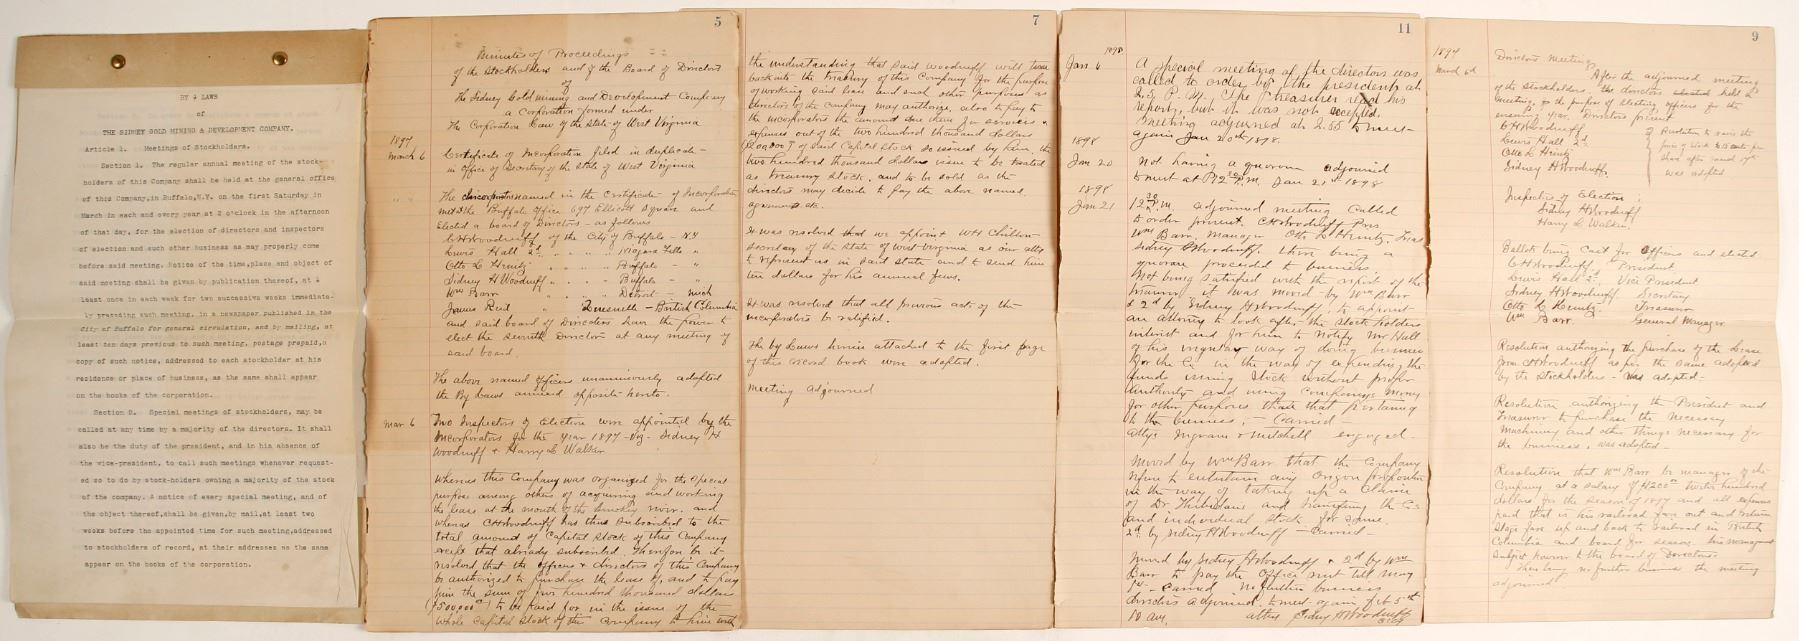 BY - LAWS
of
THE SIDNEY GOLD MINING & DEVELOPMENT COMPANY.
Article 1. Meetings of Stockholders.
Section 1. The regular annual meeting of the stock-
holders of this Company shall be held at the general office
of this Company, in Buffalo, N.Y. on the first Saturday in
March in each and every year at 2 o'clock in the afternoon
of that day, for the election of directors and inspectors
of election and such other business as may properly come
before said meeting. Notice of the time, place and object of
said meeting shall be given by publication thereof, at
least once in each week for two successive weeks immediate-
ly preceding such meeting, in a newspaper published in the
City of Buffalo for general circulation, and by mailing, at
least ten days previous to such meeting, postage prepaid, a
copy of such notice, addressed to each stockholder at his
residence or place of business, as the same shall appear
on the books of the corporation.
Section 2. Special meetings of stockholders, may be
called at any time by a majority of the directors. It shall
also be the duty of the president, and in his absence of
the vice-president, to call such meetings whenever request-
ed so to do by stock-holders owning a majority of the stock
of the company. A notice of every special meeting, and of
the object thereof, shall be given, by mail, at least two
weeks before the appointed time for such meeting, addressed
to stockholders of record, at their addresses as the same
appear on the books of the corporation.
5
Minutes of Proceedings
of the Stockholders and of the Board of Directors
of
The Sidney Gold Mining and Development Company
a Corporation formed under
The Corporation Law of the State of West Virginia
1897
March 6 Certificate of Incorporation filed in duplicate -
in Office of Secretary of the State of West Virginia
" " The Incorporators named in the Certificate of Incorporation
met at the Buffalo Office 697 Ellicott Square and
Elected a board of Directors - as follows
C H Woodruff of the City of Buffalo - N.Y
Lewis Hall 2d " " " " Niagara Falls "
Otto L Heintz " " " " Buffalo - "
Sidney H Woodruff " " " " Buffalo - "
Wm Barr " " " Detroit - Mich
James Reid " Quesnelle - British Columbia
and said board of Directors have the power to
elect the seventh Director at any meeting of
said board.
The above named officers unanimously adopted
the By Laws annexed opposite hereto.
Mar 6 Two Inspectors of Election were appointed by the
Incorporators for the year 1897 - Viz - Sidney H
Woodruff & Harry L Walker
Whereas this Company was organized for the Special
purpose among others of acquiring and working
the lease at the mouth of the river. and
whereas C H Woodruff has thus subscribed to the
total amount of Capital Stock of this Company
except that already subscribed. Therefore be it
resolved that the Officers & directors of this Company
be authorized to purchase the lease of, and to pay
him the sum of five hundred thousand dollars
(500,000 00) to be paid for in the issue of the
whole Capital Stock of the Company to him with
7
the understanding that said Woodruff will turn
back into the treasury of this Company for the purpose
of working said lease and such other purposes as
directors of the Company may authorize, also to pay to
the incorporators the amount due them for services &
expenses out of the two hundred thousand dollars
of said Capital Stock so issued by him, the
two hundred thousand dollars issue to be treated
as treasury stock, and to be sold as the
directors may decide to pay the above named
agreement etc.
It was resolved that we appoint W H Chilton
Secretary of the State of West Virginia as our atty
to represent us in said state and to send him
ten dollars for his annual fees.
It was resolved that all previous acts of the
incorporators be ratified.
The by Laws herein attached to the first page
of this record book were adopted.
Meeting Adjourned
11
1898
Jan 6 A special meeting of the directors was
called to order by the president at
2.30 P.M. The Treasurer read his
report, but it was not accepted.
Meeting adjourned at 2.55 to meet
again Jan 20th 1898.
1898
Jan 20 Not having a quorum adjourned
to meet at M. Jan 21st 1898
1898
Jan 21 12 M. adjourned meeting called
to order present. C H Woodruff - Pres
Wm Barr, Manager Otto L Heintz, Treas
Sidney H Woodruff. there being a
quorum proceeded to business.
Not being satisfied with the report of the
Treasurer it was moved by Wm Barr
& 2d by Sidney H Woodruff, to appoint
an attorney to look after the stockholders
interest and for him to notify Mr Hall
of his irregular way of doing business
for the Co in the way of expending the
funds issuing stock without proper
authority and using Company's money
for other purposes than that pertaining
to the business. Carried -
Attys Ingram & Mitchell engaged.
Moved by Wm Barr that the Company
refuse to entertain any proposition
in the way of taking up a claim
of Dr and transfering the Co's
and individual stock for same.
2d by Sidney H Woodruff - Carried -
Moved by Sidney H Woodruff & 2d by Wm
Barr to pay the Office rent till May
1st - Carried No further business
directors adjourned to meet again 5th
10 am. attest Sidney H Woodruff
Secy
9
1897
March 6th Directors Meeting,
After the adjourned meeting
of the Stockholders the directors held a
meeting, for the purpose of electing officers for the
ensuing year. Directors present
C H Woodruff
Lewis Hall 2d
Otto L Heintz
Sidney H Woodruff.
Resolution to raise the
price of stock to 15 cents per
share after
was adopted
Inspectors of Election;
Sidney H Woodruff
Harry L Walker.
Ballots being cast for Officers and elected
C H Woodruff President
Lewis Hall 2d. Vice President
Sidney H Woodruff Secretary
Otto L Heintz. Treasurer
Wm Barr. General Manager
Resolution authorizing the purchase of the Lease
from C H Woodruff as per the same adopted
by the Stockholders - was adopted -
Resolution authorizing the President and
Treasurer to purchase the necessary
Machinery and other things necessary for
the business, was adopted -
Resolution that Wm Barr be manager of the
Company at a salary of $1200 00 twelve hundred
dollars for the season of 1897 and all expenses
paid that is his railroad fare out and return
Stage fare up and back to railroad in British
Columbia and board for season his management
subject however to the board of Directors.
There being no further business the meeting
adjourned